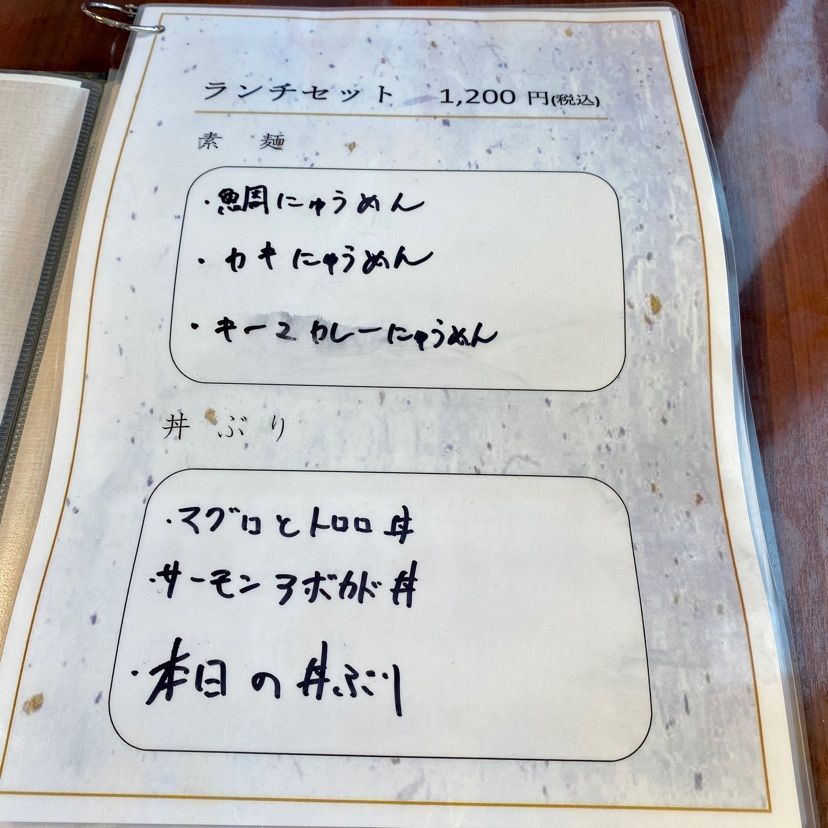 ランチセット 1,200 円(税込)
素 麺
・鯛にゅうめん
・カキにゅうめん
・キーマカレーにゅうめん
丼 ぶり
・マグロとトロロ丼
・サーモンアボカド丼
・本日の丼ぶり